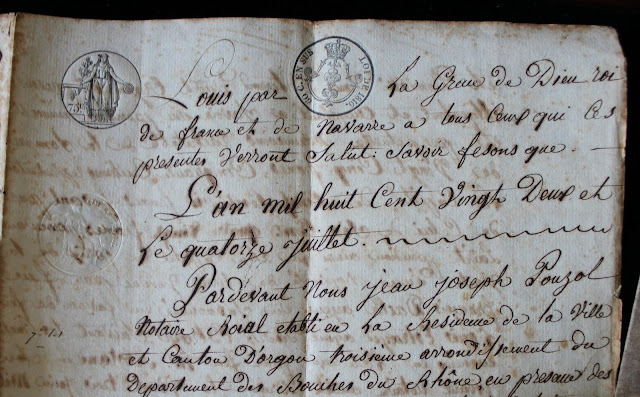 75c
DO C. EN SUS
LOI DE 1816
Louis par La Grace de Dieu roi
de france et de Navarre a tous Ceux qui Ces
presentes Verront Salut : Savoir fesons que
L'an mil huit Cent Vingt Deux et
Le quatorze juillet.
Pardevant Nous jean joseph Pouzol
Notaire Roial etabli en La Residence de la Ville
et Canton D'orgon troisieme arrondissement du
Departement des Bouches du Rhône, en presence des